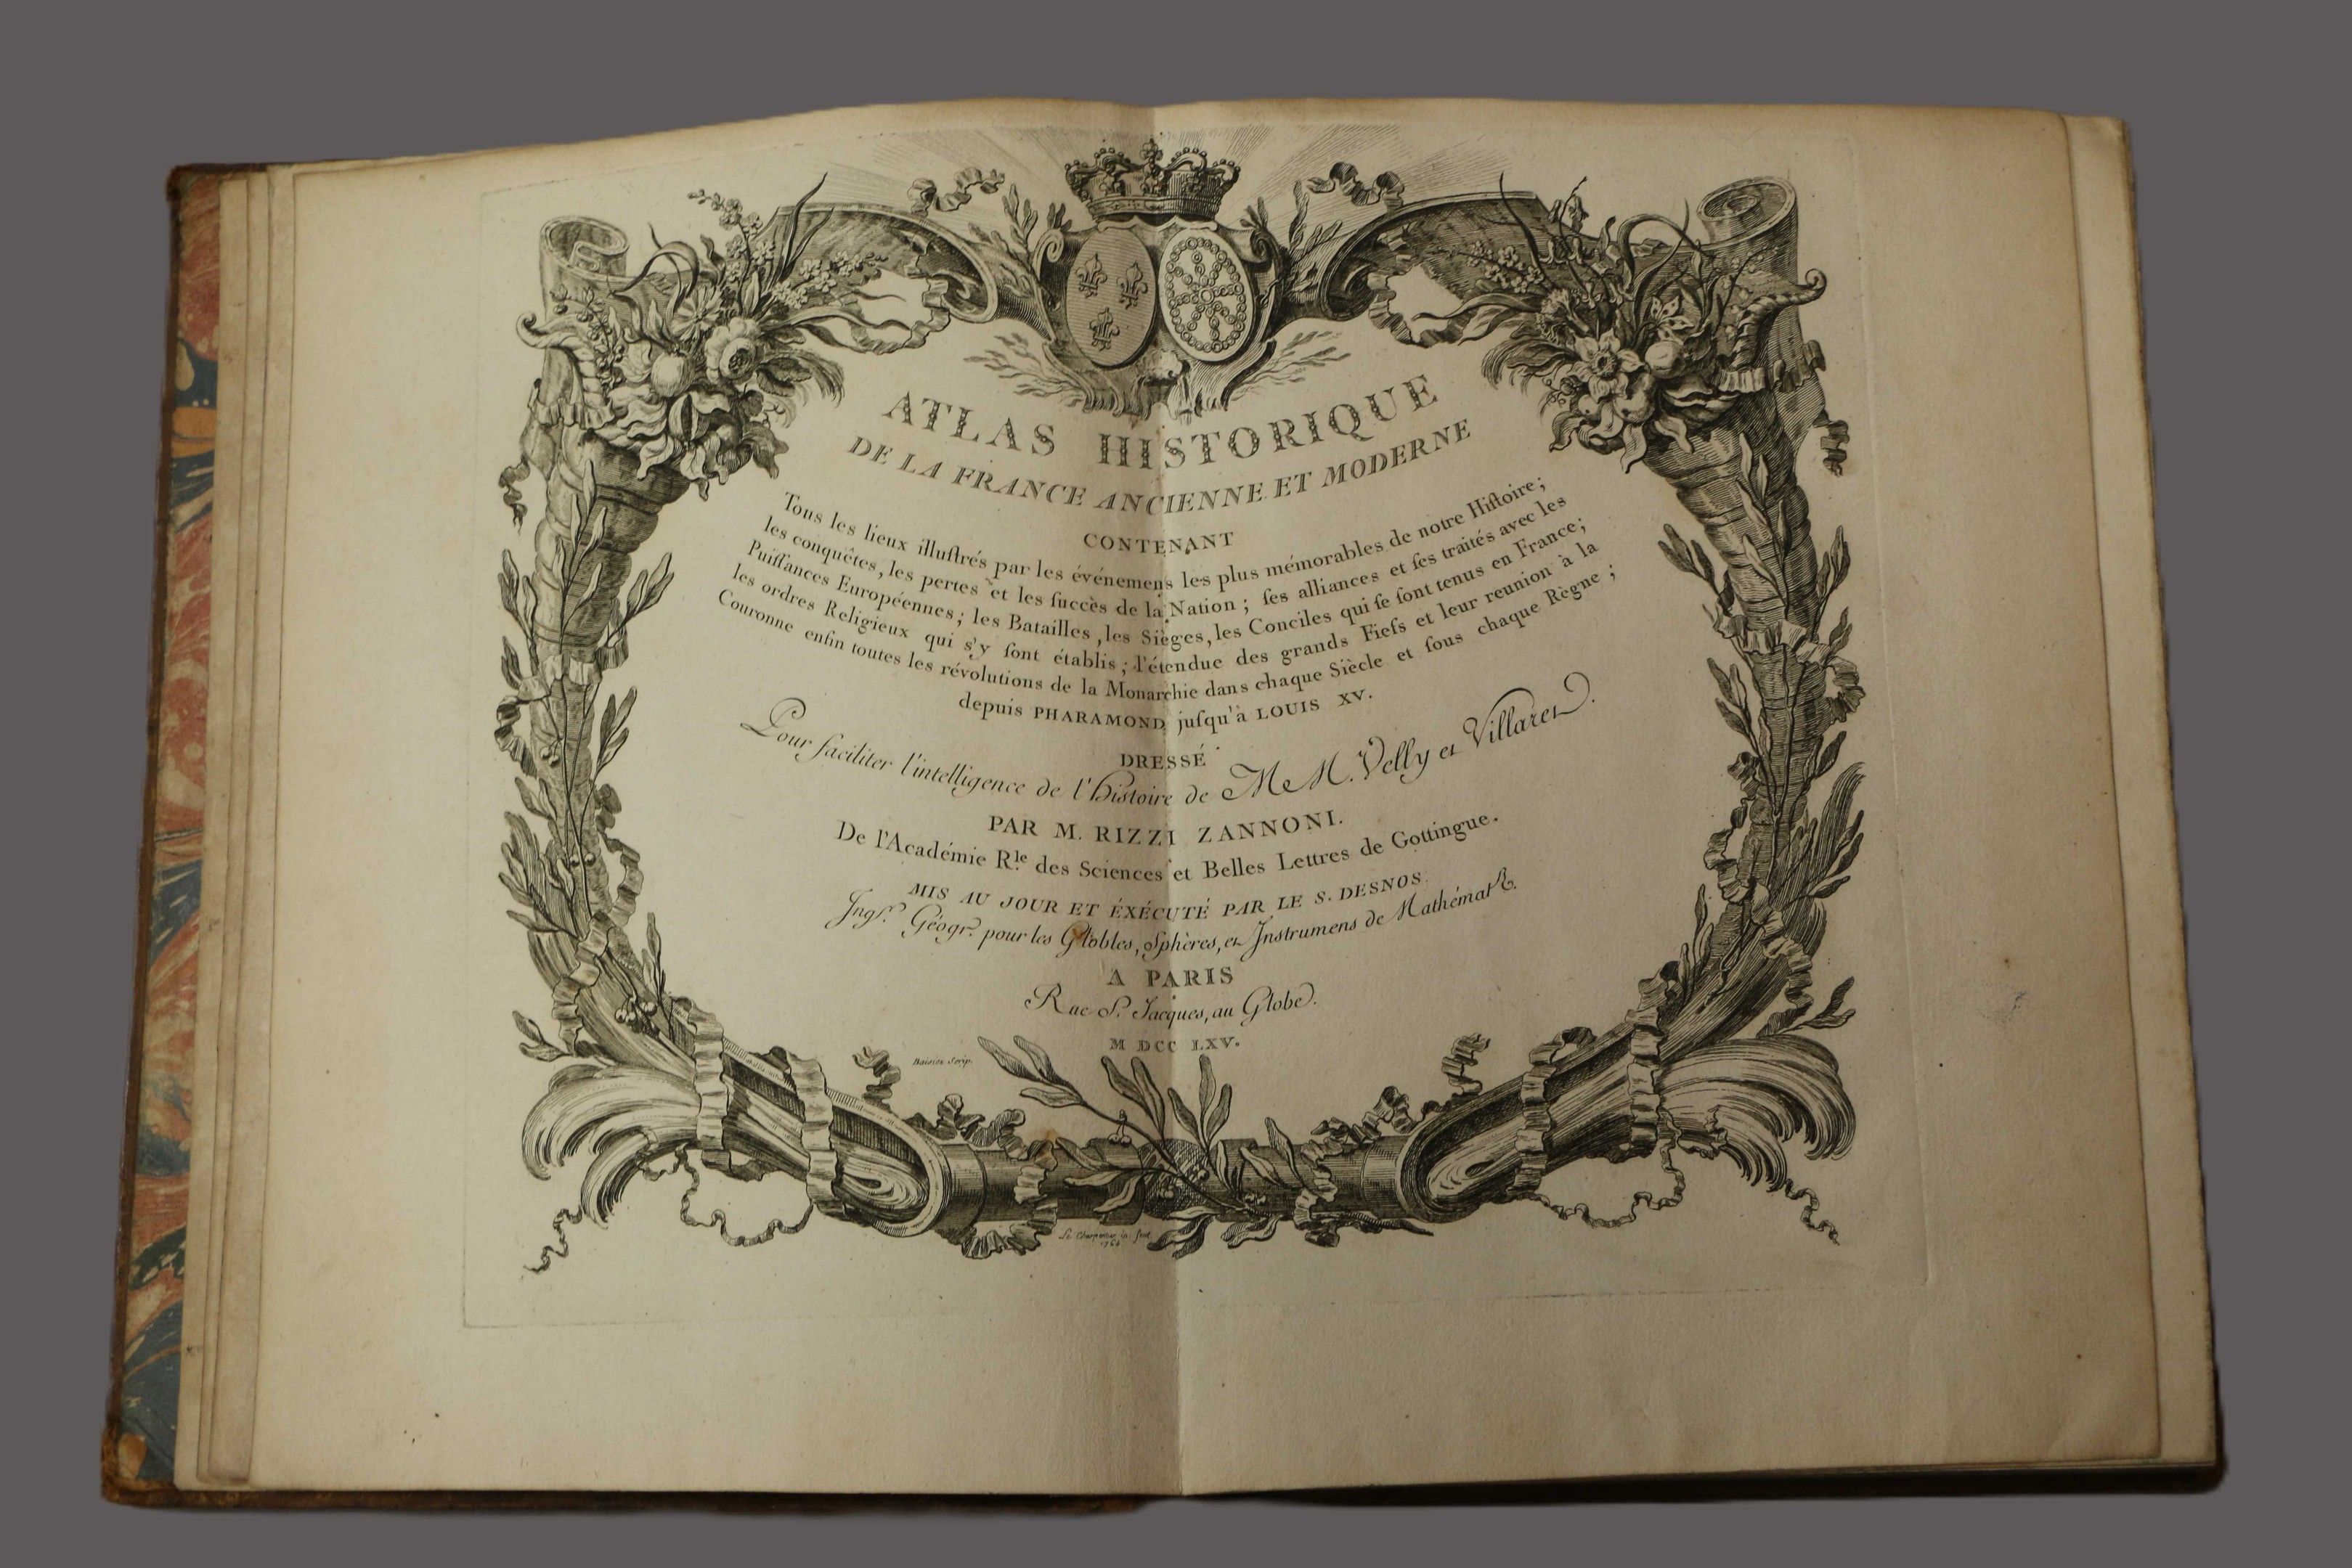 ATLAS HISTORIQUE
DE LA FRANCE ANCIENNE ET MODERNE
CONTENANT
Tous les lieux illuſtrés par les événemens les plus mémorables de notre Hiſtoire;
les conquêtes, les pertes et les ſuccès de la Nation; ſes alliances et ſes traités avec les
Puiſſances Européennes; les Batailles, les Sièges, les Conciles qui ſe ſont tenus en France;
les ordres Religieux qui s'y ſont établis; l'étendue des grands Fiefs et leur reunion à la
Couronne enfin toutes les révolutions de la Monarchie dans chaque Siècle et ſous chaque Règne;
depuis PHARAMOND juſqu'à LOUIS XV.
DRESSÉ
Pour faciliter l'intelligence de l'Histoire de M M. Velly et Villaret.
PAR M. RIZZI ZANNONI.
De l'Académie R.le des Sciences et Belles Lettres de Gottingue.
MIS AU JOUR ET ÉXÉCUTÉ PAR LE S. DESNOS
Ingr. Géogr. pour les Globles, Sphères, et Instrumens de Mathémat
A PARIS
Rue S. Jacques, au Globe.
M DCC LXV.
Baisiez Scrip.
Le Charpentier in. fecit